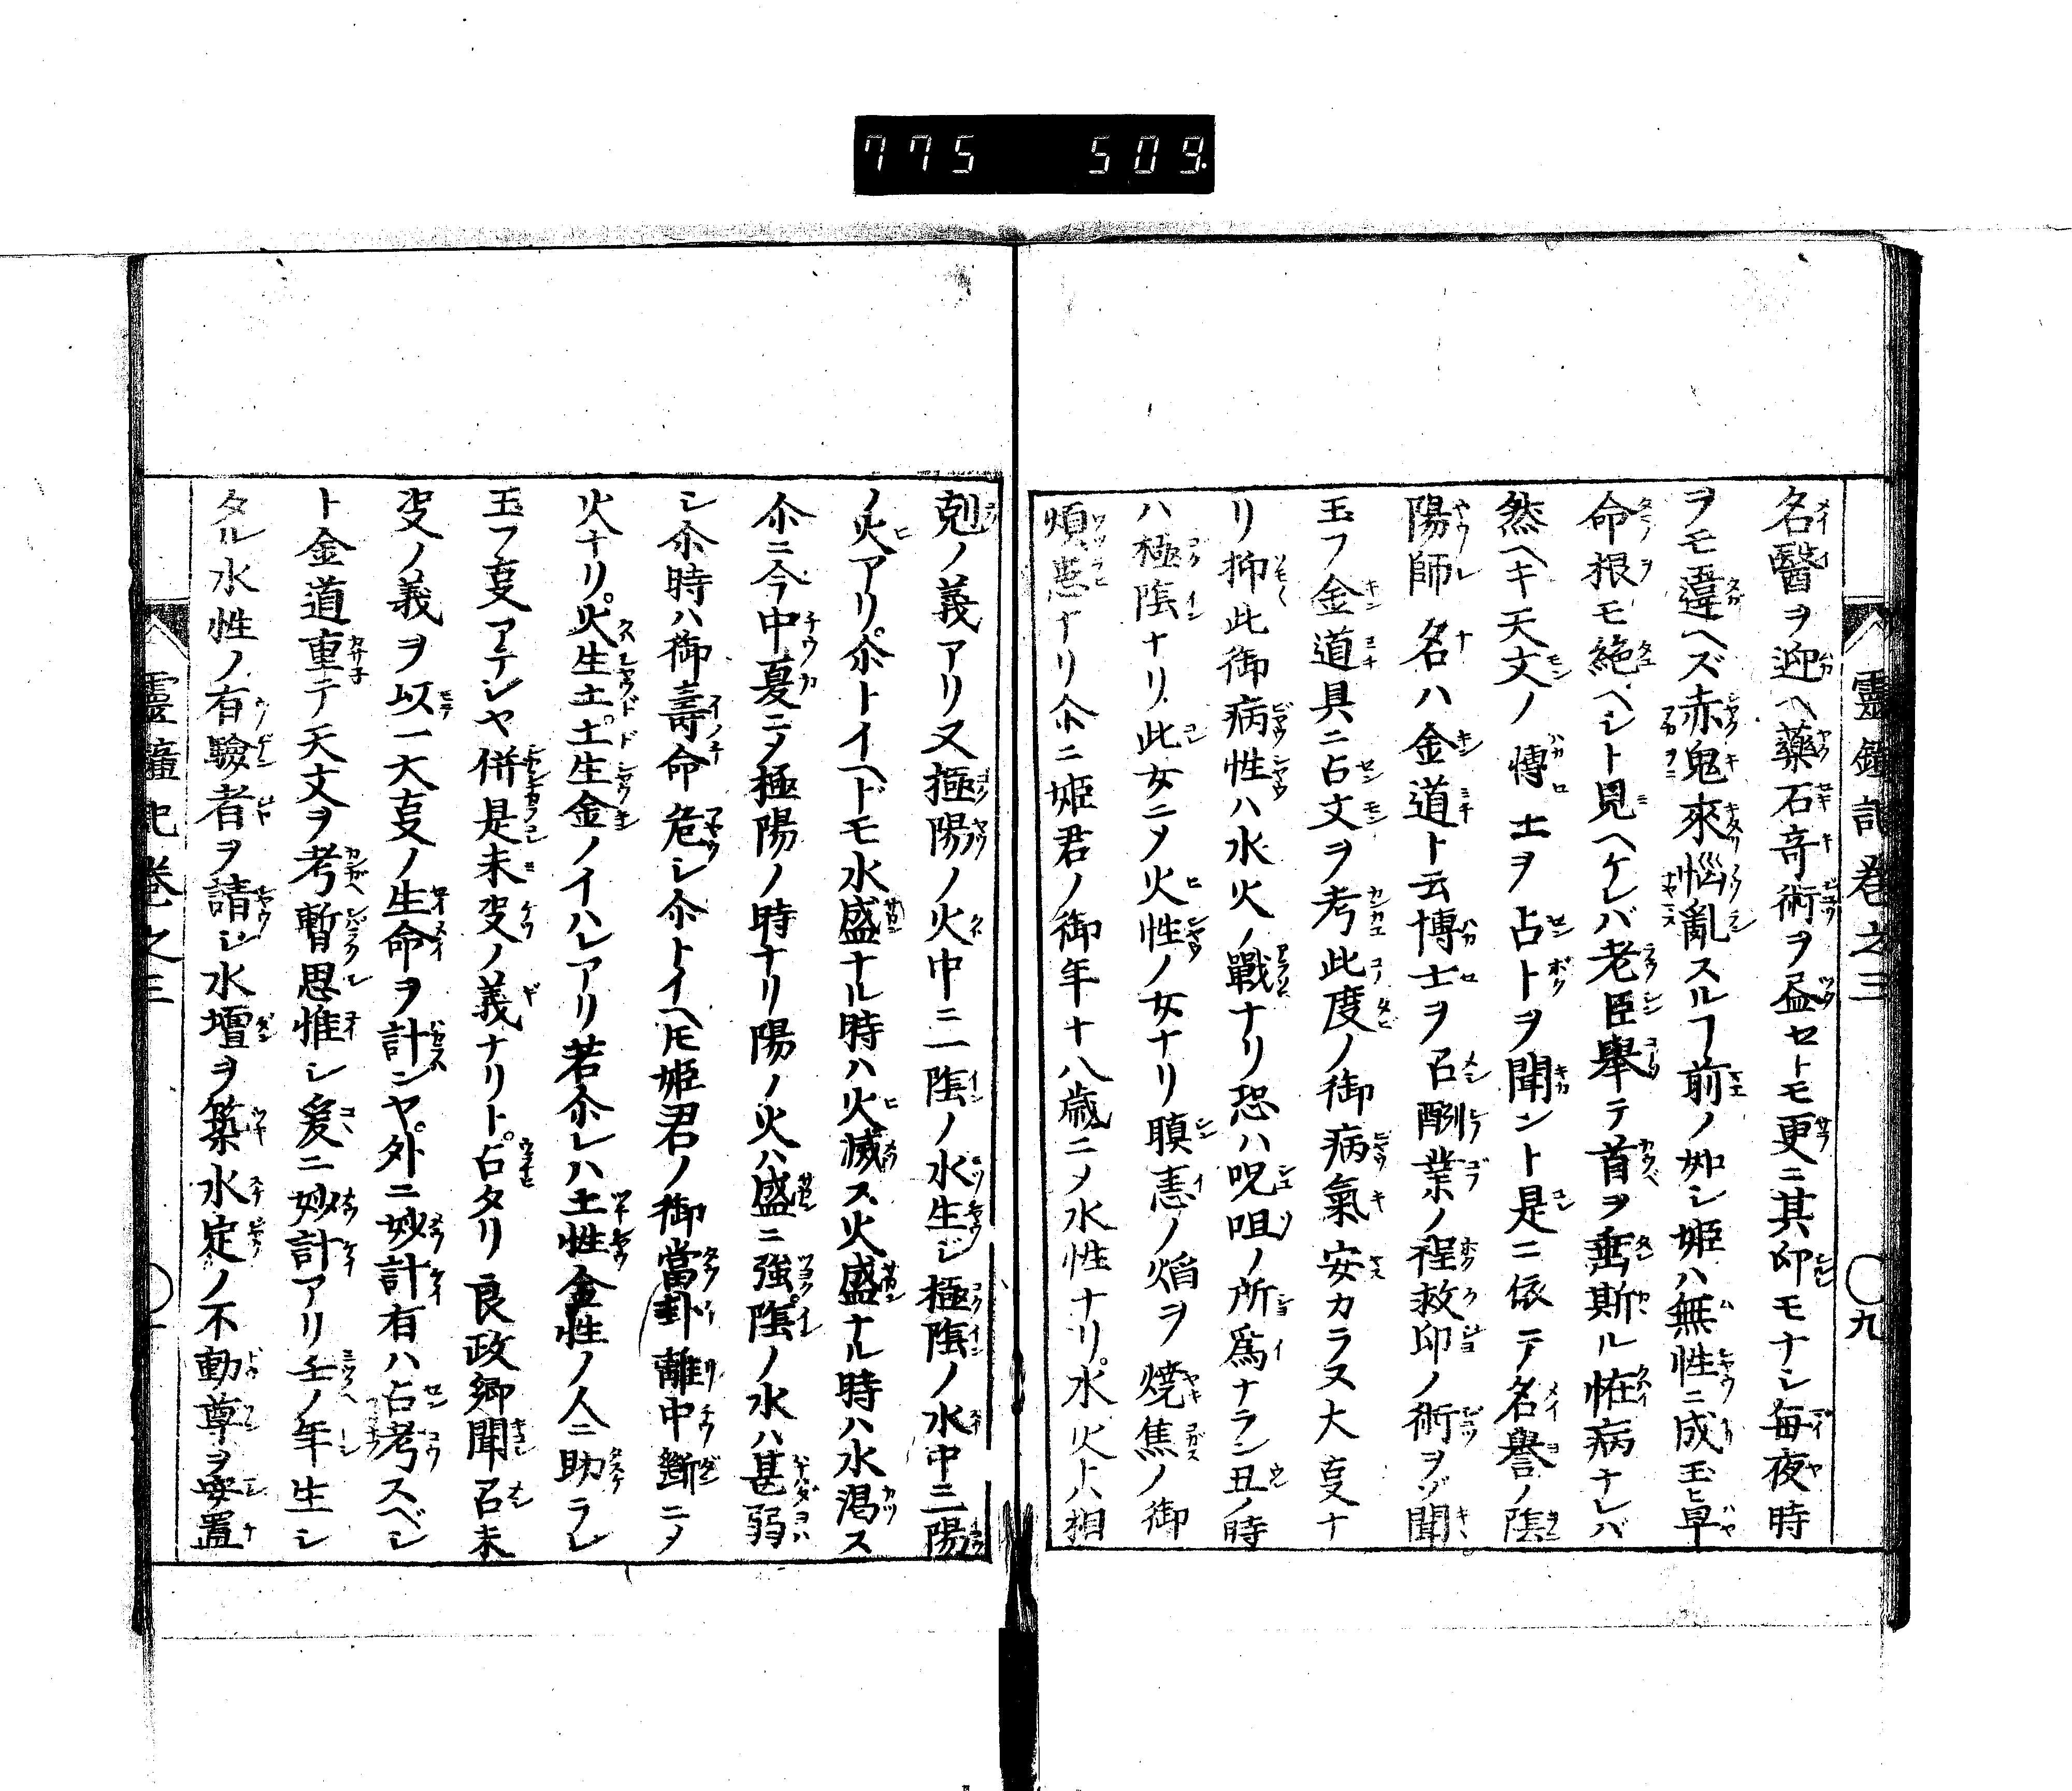 775 509.
靈鑑記卷之三 ○九
名醫ヲ迎ヘ藥石竒術ヲ盡セトモ更ニ其印モナシ毎夜時
ヲモ違ヘズ赤鬼來惱亂スルヿ前ノ如シ姫ハ無性ニ成玉ヒ早
命根モ絶ヘシト見ヘケレバ老臣舉テ首ヲ垂斯ル恠病ナレバ
然ヘキ天文ノ博士ヲ占トヲ聞ント是ニ依テ名譽ノ陰
陽師名ハ金道ト云博士ヲ召酬業ノ程救印ノ術ヲゾ聞
玉フ金道具ニ占文ヲ考此度ノ御病氣安カラヌ大叓ナ
リ抑此御病性ハ水火ノ戰ナリ恐ハ呪咀ノ所爲ナラン丑ノ時
ハ極陰ナリ此女ニメ火性ノ女ナリ瞋恚ノ焔ヲ燒焦ノ御
煩ヒナリ尒ニ姫君ノ御年十八歳ニメ水性ナリ水火ハ相
剋ノ義アリ又極陽ノ火中ニ一陰ノ水生ジ極陰ノ水中ニ陽
ノ火アリ尒トイヘドモ水盛ナル時ハ火滅ス火盛ナル時ハ水渇ス
尒ニ今中夏ニメ極陽ノ時ナリ陽ノ火ハ盛ニ強陰ノ水ハ甚弱
シ尒時ハ御壽命危シ尒トイヘ𪜈姫君ノ御當卦離中斷ニメ
火ナリ火生土土生金ノイハレアリ若尒レハ土性金性ノ人ニ助ラレ
玉フ叓アランヤ併是未叓ノ義ナリト占タリ良政卿聞召未
叓ノ義ヲ以一大叓ノ生命ヲ計ンヤ外ニ妙計有ハ占考スベシ
ト金道重テ天文ヲ考暫思惟シ爰ニ妙計アリ壬ノ年生シ
タル水性ノ有驗者ヲ請シ水壇ヲ築水定ノ不動尊ヲ安置
靈鑑記卷之三